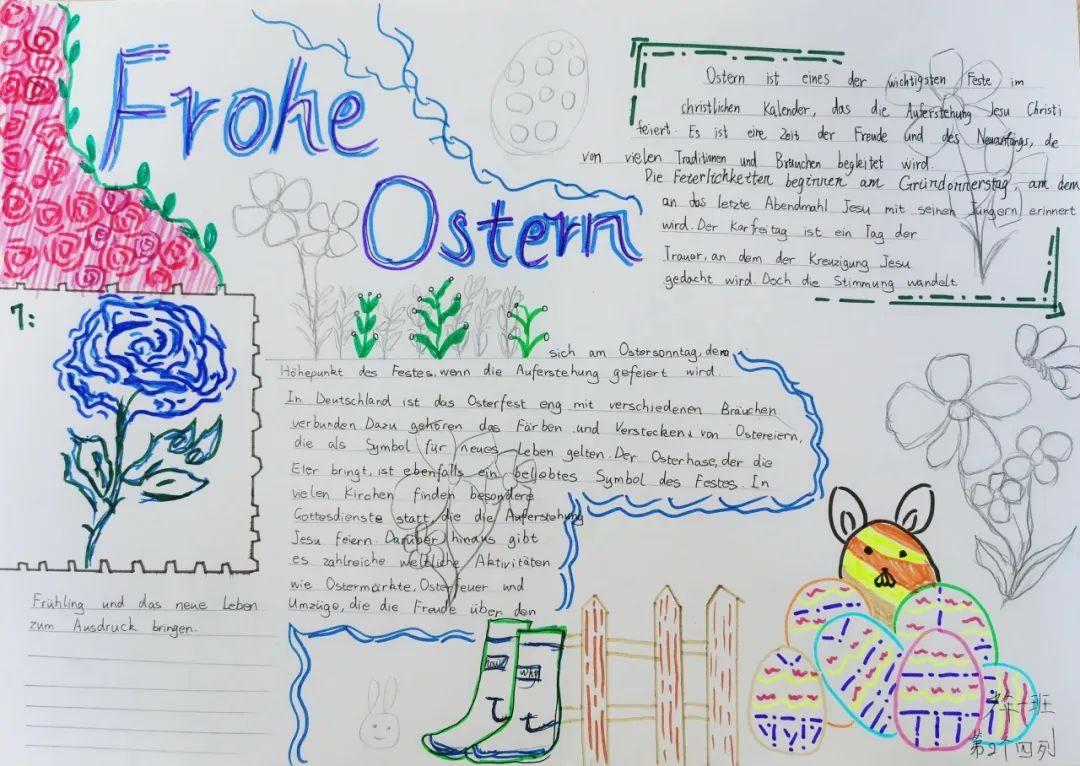 Frohe
Ostern
Ostern ist eines der wichtigsten Feste im
christlichen Kalender, das die Auferstehung Jesu Christi
feiert. Es ist eine Zeit der Freude und des Neuanfangs, die
von vielen Traditionen und Bräuchen begleitet wird.
Die Feierlichkeiten beginnen am Gründonnerstag, am dem
an das letzte Abendmahl Jesu mit seinen Jüngern erinnert
wird. Der Karfreitag ist ein Tag der
Trauer, an dem der Kreuzigung Jesu
gedacht wird. Doch die Stimmung wandelt
sich am Ostersonntag, dem
Höhepunkt des Festes, wenn die Auferstehung gefeiert wird.
In Deutschland ist das Osterfest eng mit verschiedenen Bräuchen
verbunden. Dazu gehören das Färben und Verstecken von Ostereiern,
die als Symbol für neues Leben gelten. Der Osterhase, der die
Eier bringt, ist ebenfalls ein beliebtes Symbol des Festes. In
vielen Kirchen finden besondere
Gottesdienste statt, die die Auferstehung
Jesu feiern. Darüber hinaus gibt
es zahlreiche weltliche Aktivitäten
wie Ostermärkte, Osterfeuer und
Umzüge, die die Freude über den
1:
Frühling und das neue Leben
zum Ausdruck bringen.
班
第2个四列